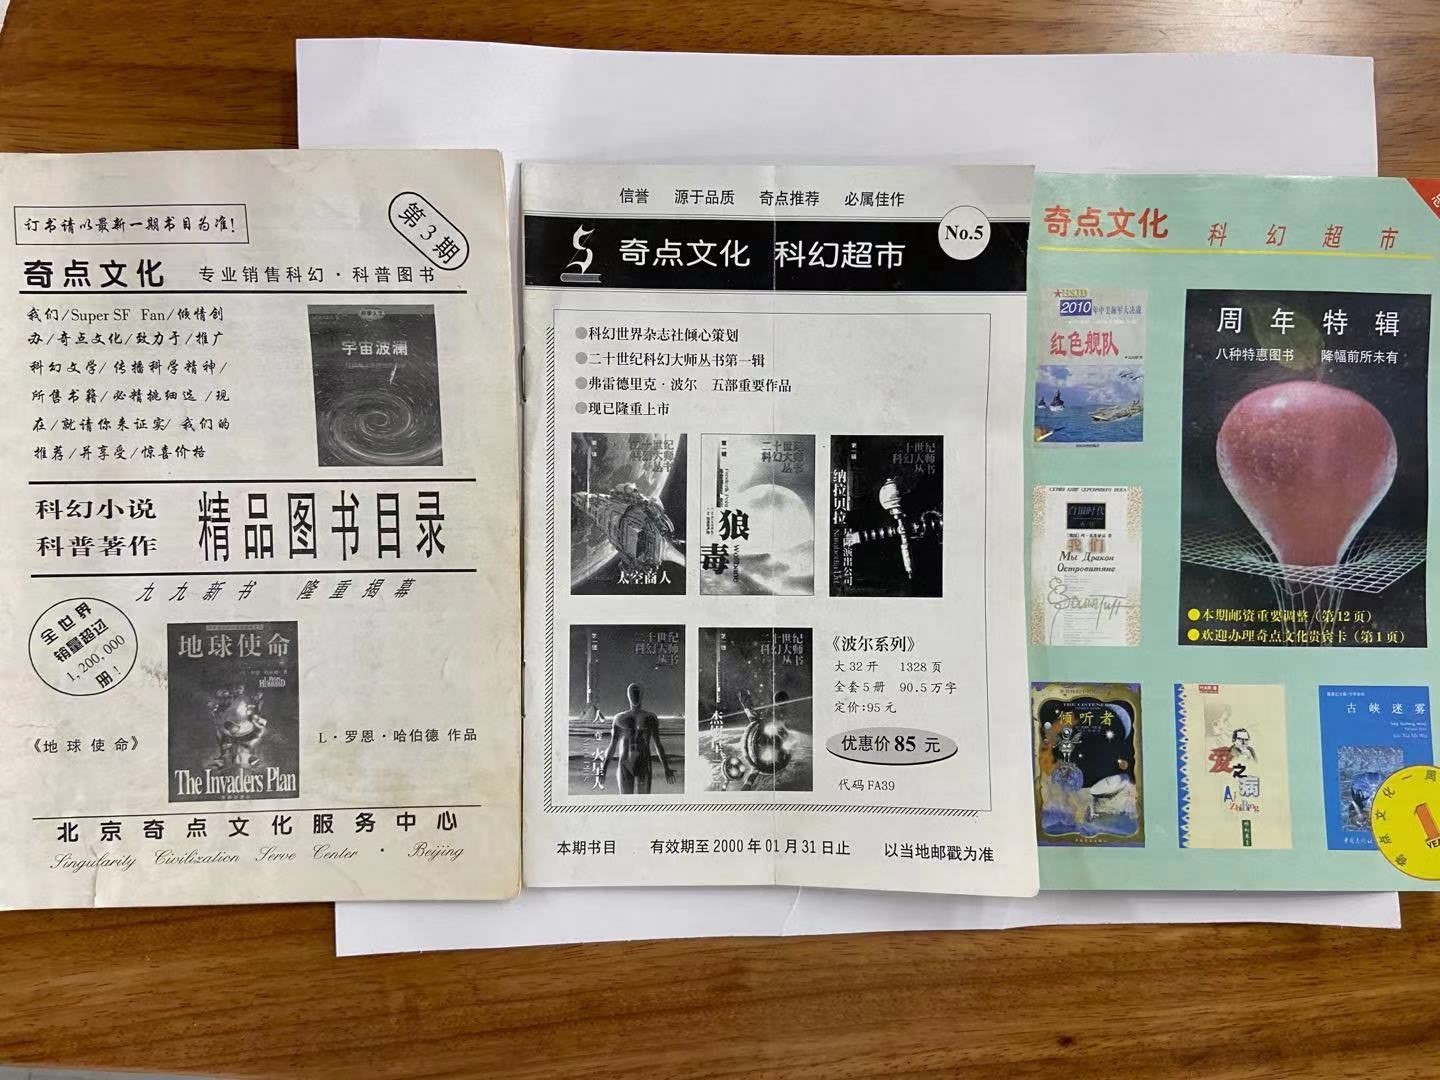 订书请以最新一期书目为准！
第3期
奇点文化 专业销售科幻·科普图书
我们/Super SF Fan/倾情创
办/奇点文化/致力于/推广
科幻文学/传播科学精神/
所售书籍/必精挑细选/现
在/就请你来证实/我们的
推荐/并享受/惊喜价格
宇宙波澜
科幻小说
科普著作
精品图书目录
九九新书 隆重揭幕
全世界
销量超过
1,200,000
册！
地球使命
The Invaders Plan
《地球使命》
L·罗恩·哈伯德 作品
北京奇点文化服务中心
Singularity Civilization Serve Center · Beijing
信誉 源于品质 奇点推荐 必属佳作
S 奇点文化 科幻超市
No.5
●科幻世界杂志社倾心策划
●二十世纪科幻大师丛书第一辑
●弗雷德里克·波尔 五部重要作品
●现已隆重上市
第一辑
二十世纪
科幻大师
丛书
太空商人
第一辑
二十世纪
科幻大师
丛书
狼毒
第一辑
二十世纪
科幻大师
丛书
纳拉贝拉
星际演出公司
第一辑
二十世纪
科幻大师
丛书
火星人
二十世纪
科幻大师
丛书
《波尔系列》
大32开 1328页
全套5册 90.5万字
定价:95元
优惠价85元
代码FA39
本期书目 有效期至2000年01月31日止 以当地邮戳为准
奇点文化 科幻超市
2010年中美海军大决战
红色舰队
周年特辑
八种特惠图书 降幅前所未有
●本期邮资重要调整（第12页）
●欢迎办理奇点文化贵宾卡（第1页）
白银时代
我们
Мы Дракон
Островитяне
THE LISTENERS
倾听者
爱之病
Ai
Zhi Bing
古峡迷雾
奇点文化一周
1
YEA